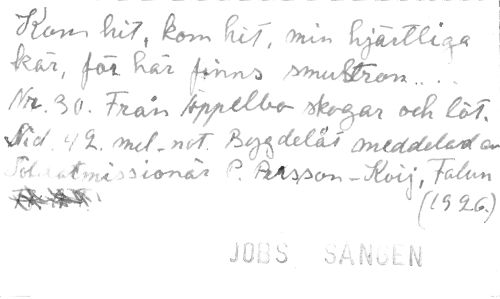 Kom hit, kom hit, min hjärtliga
kär, för här finns smultron....
Nr. 30. Från Äppelbo skogar och löt.
Sid. 42. mel.-not. Bygdelåt meddelad av
missionär P. Persson-Koij, Falun
(1926.)
JOBS SANGEN